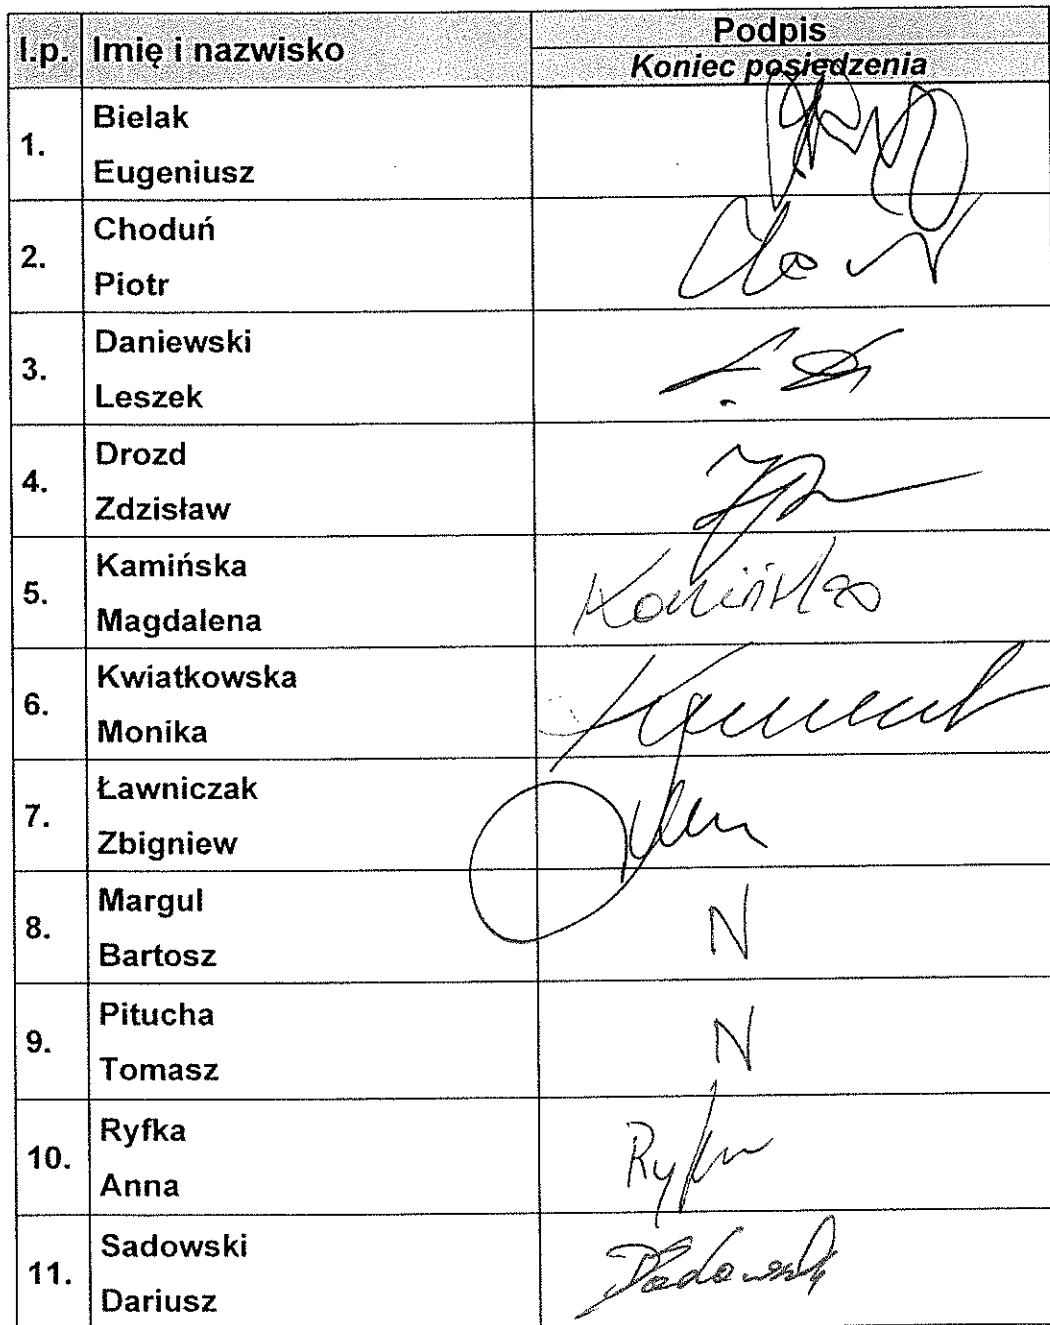 l.p. Imię i nazwisko Podpis
Koniec posiedzenia
1. Bielak
Eugeniusz
2. Choduń
Piotr
3. Daniewski
Leszek
4. Drozd
Zdzisław
5. Kamińska
Magdalena
Kamińska
6. Kwiatkowska
Monika
7. Ławniczak
Zbigniew
8. Margul
Bartosz
N
9. Pitucha
Tomasz
N
10. Ryfka
Anna
Ryfka
11. Sadowski
Dariusz
DSadowski